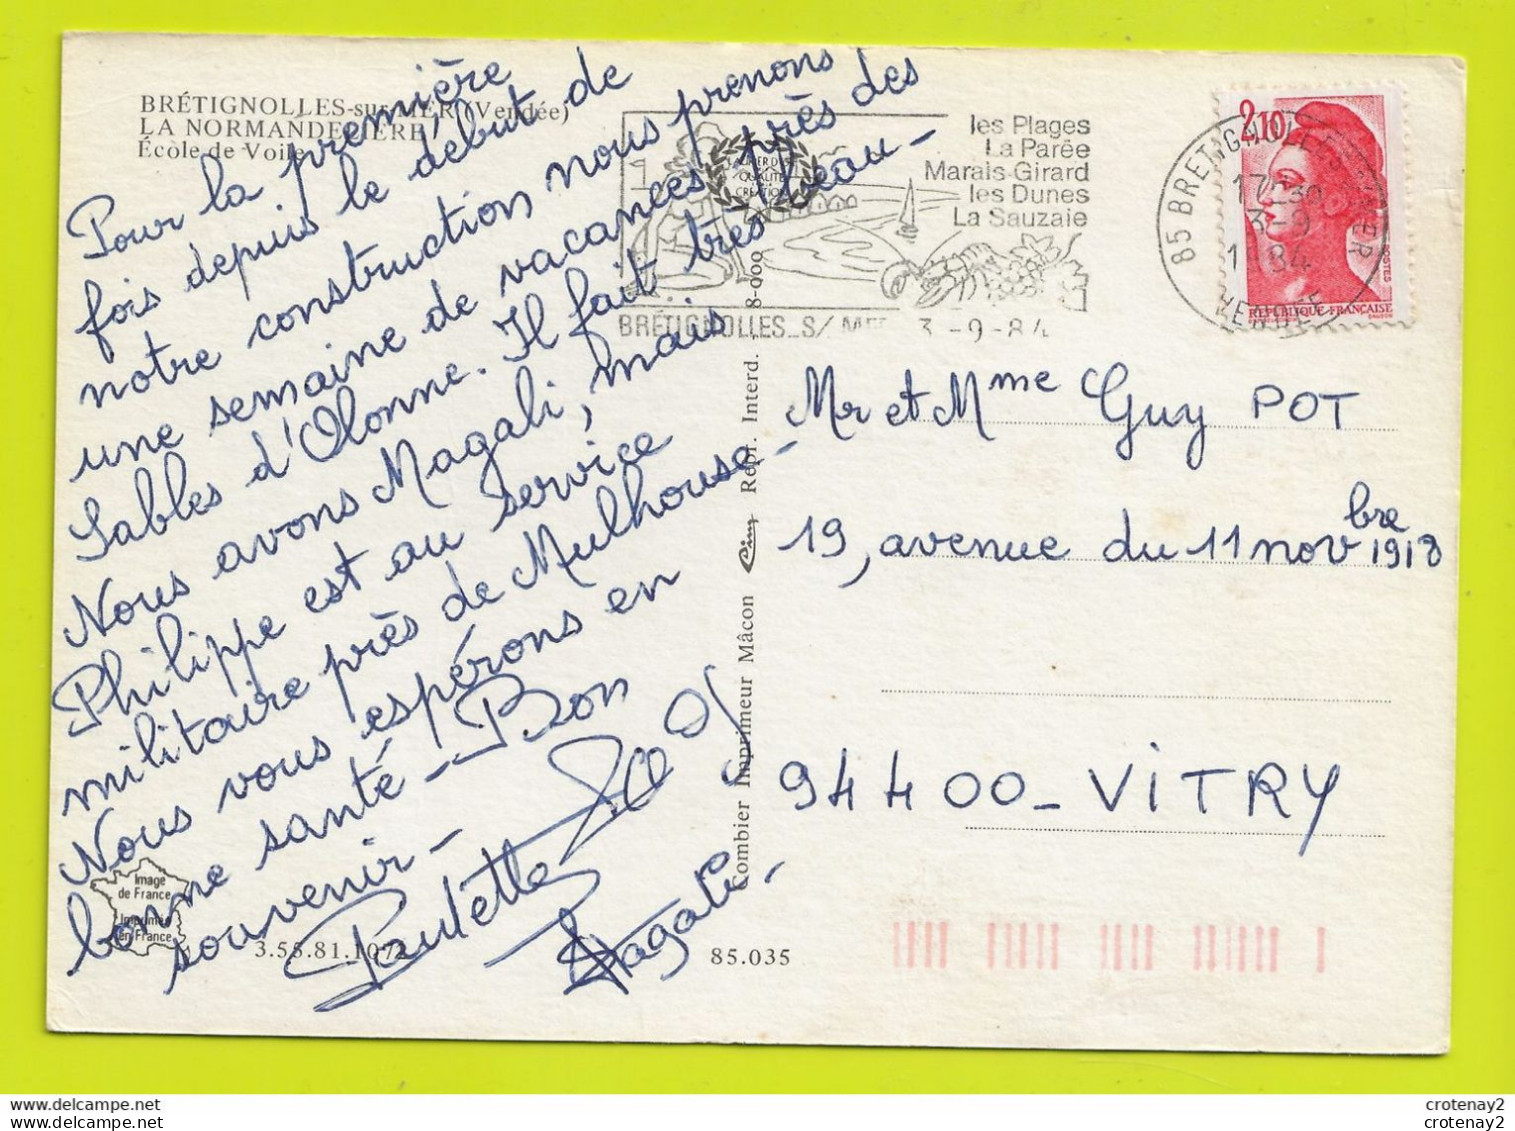 BRÉTIGNOLLES-sur-MER (Vendée)
LA NORMANDELIÈRE
École de Voile
Pour la première
fois depuis le début de
notre construction nous prenons
une semaine de vacances près des
Sables d'Olonne. Il fait très beau -
Nous avons Magali, mais
Philippe est au service
militaire près de Mulhouse -
Nous vous espérons en
bonne santé - Bon
souvenir -
Paulette
Magali -
Image
de France
Imprimée
en France
3.55.81.1072
85.035
Combier Imprimeur Mâcon Cim Repr. Interd. 8-000
LAURIER DE
QUALITE
CREATION
les Plages
La Parée
Marais-Girard
les Dunes
La Sauzaie
BRÉTIGNOLLES_S/ MER 3 -9-84
85 BRETIGNOLLES S MER
17-30
3-9
1984
VENDEE
2,10
POSTES
REPUBLIQUE FRANÇAISE
Mr et Mme Guy POT
19, avenue du 11 novbre 1918
94400 - VITRY
crotenay2
crotenay2